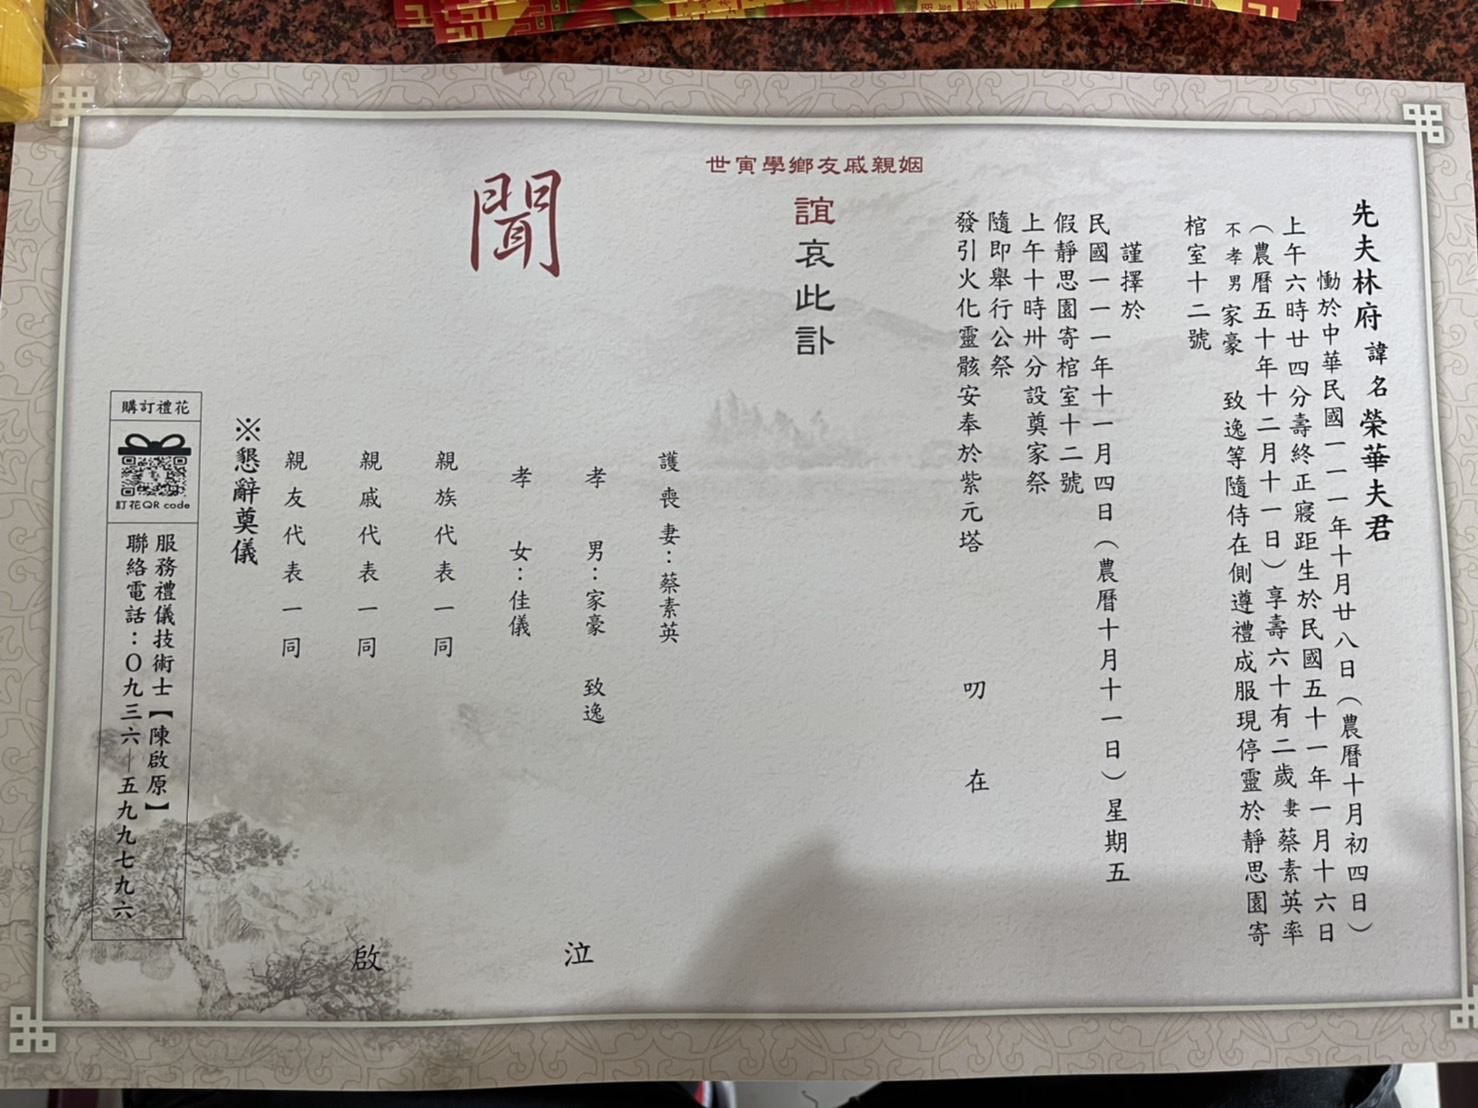 先夫林府 諱名榮華夫君
慟於中華民國一一一年十月廿八日（農曆十月初四日）
上午六時廿四分壽終正寢距生於民國五十一年一月十六日
（農曆五十年十二月十一日）享壽六十有二歲 妻 蔡素英率
不孝男 家豪 致逸等隨侍在側遵禮成服現停靈於靜思園寄
棺室十二號
謹擇於
民國一一一年十一月四日（農曆十月十一日）星期五
假靜思園寄棺室十二號
上午十時卅分設奠家祭
隨即舉行公祭
發引火化靈骸安奉於紫元塔 叨在
姻親戚友鄉學寅世
誼哀此訃
聞
護喪妻：蔡素英
孝男：家豪 致逸
孝女：佳儀
泣
親族代表一同
親戚代表一同
親友代表一同
啟
※懇辭奠儀
購訂禮花
訂花QR code
服務禮儀技術士【陳啟原】
聯絡電話：０九三六—五九九七九六